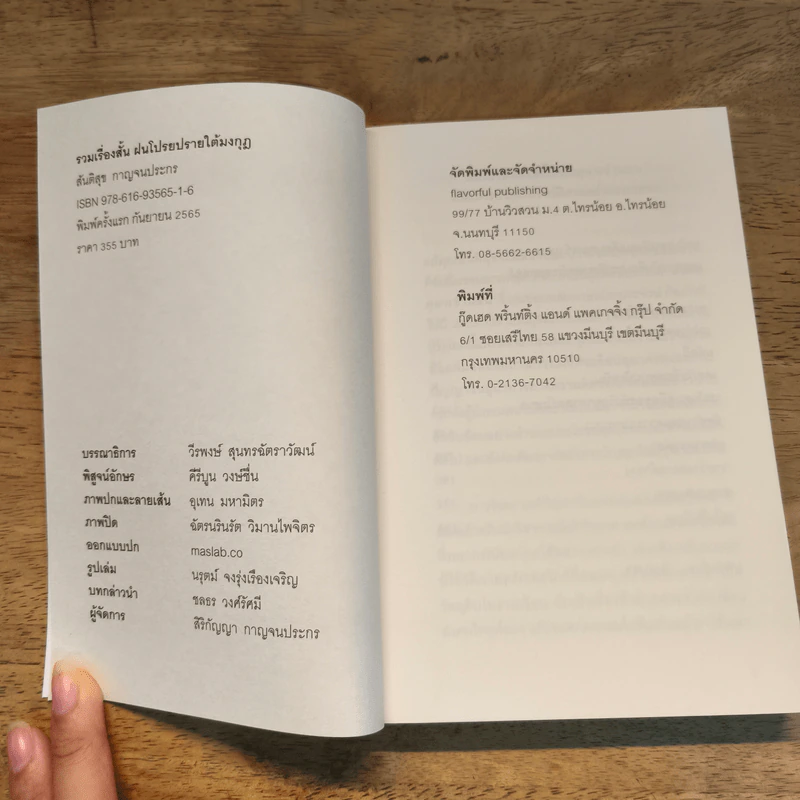 รวมเรื่องสั้น ฝนโปรยปรายใต้มงกุฎ
สันติสุข กาญจนประกร
ISBN 978-616-93565-1-6
พิมพ์ครั้งแรก กันยายน 2565
ราคา 355 บาท
บรรณาธิการ วีรพงษ์ สุนทรฉัตราวัฒน์
พิสูจน์อักษร คีรีบูน วงษ์ชื่น
ภาพปกและลายเส้น อุเทน มหามิตร
ภาพปิด ฉัตรนรินรัต วิมานไพจิตร
ออกแบบปก maslab.co
รูปเล่ม นฤตม์ จงรุ่งเรืองเจริญ
บทกล่าวนำ ชลธร วงศ์รัศมี
ผู้จัดการ สิริกัญญา กาญจนประกร
จัดพิมพ์และจัดจำหน่าย
flavorful publishing
99/77 บ้านวิวสวน ม.4 ต.ไทรน้อย อ.ไทรน้อย
จ.นนทบุรี 11150
โทร. 08-5662-6615
พิมพ์ที่
กู๊ดเฮด พริ้นท์ติ้ง แอนด์ แพคเกจจิ้ง กรุ๊ป จำกัด
6/1 ซอยเสรีไทย 58 แขวงมีนบุรี เขตมีนบุรี
กรุงเทพมหานคร 10510
โทร. 0-2136-7042